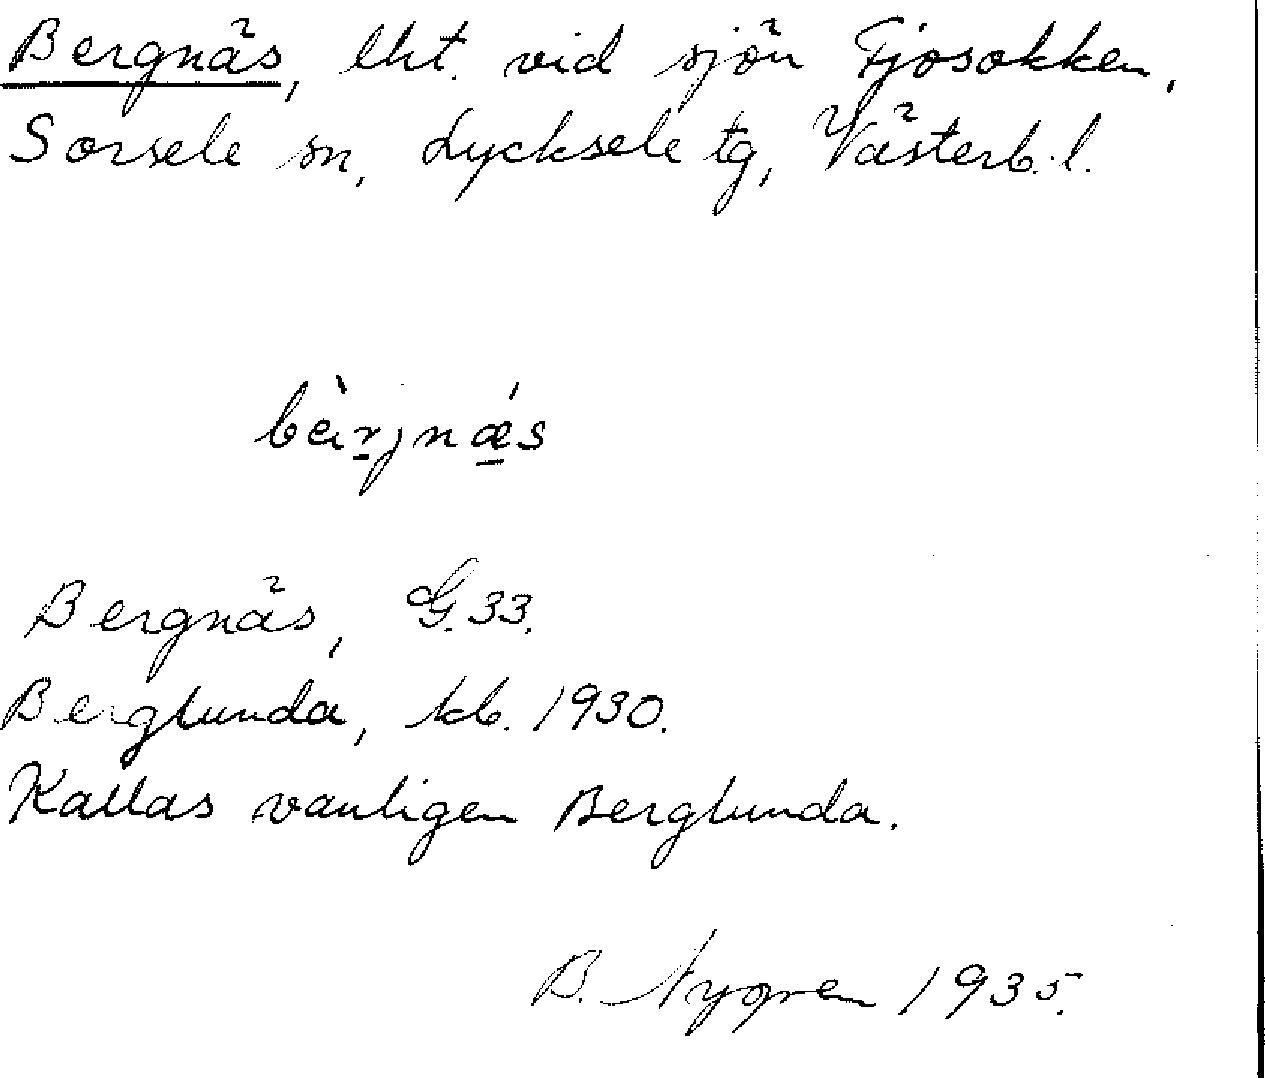 Bergnäs, lht. vid sjön Gjosokken,
Sorsele sn, Lycksele tg, Västerb. l.
Bergnäs, G. 33.
Berglunda, kb. 1930.
Kallas vanligen Berglunda.
B. Nygren 1935.